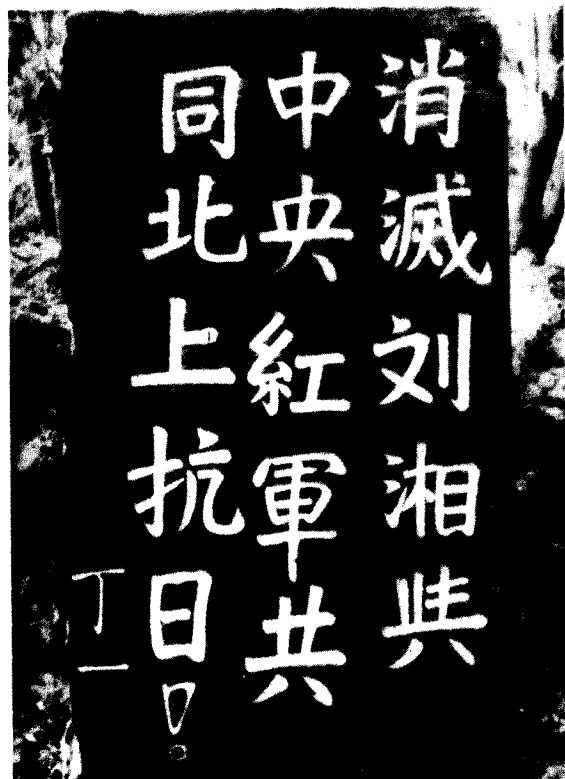 消滅刘湘與
中央紅軍共
同北上抗日！
丁一